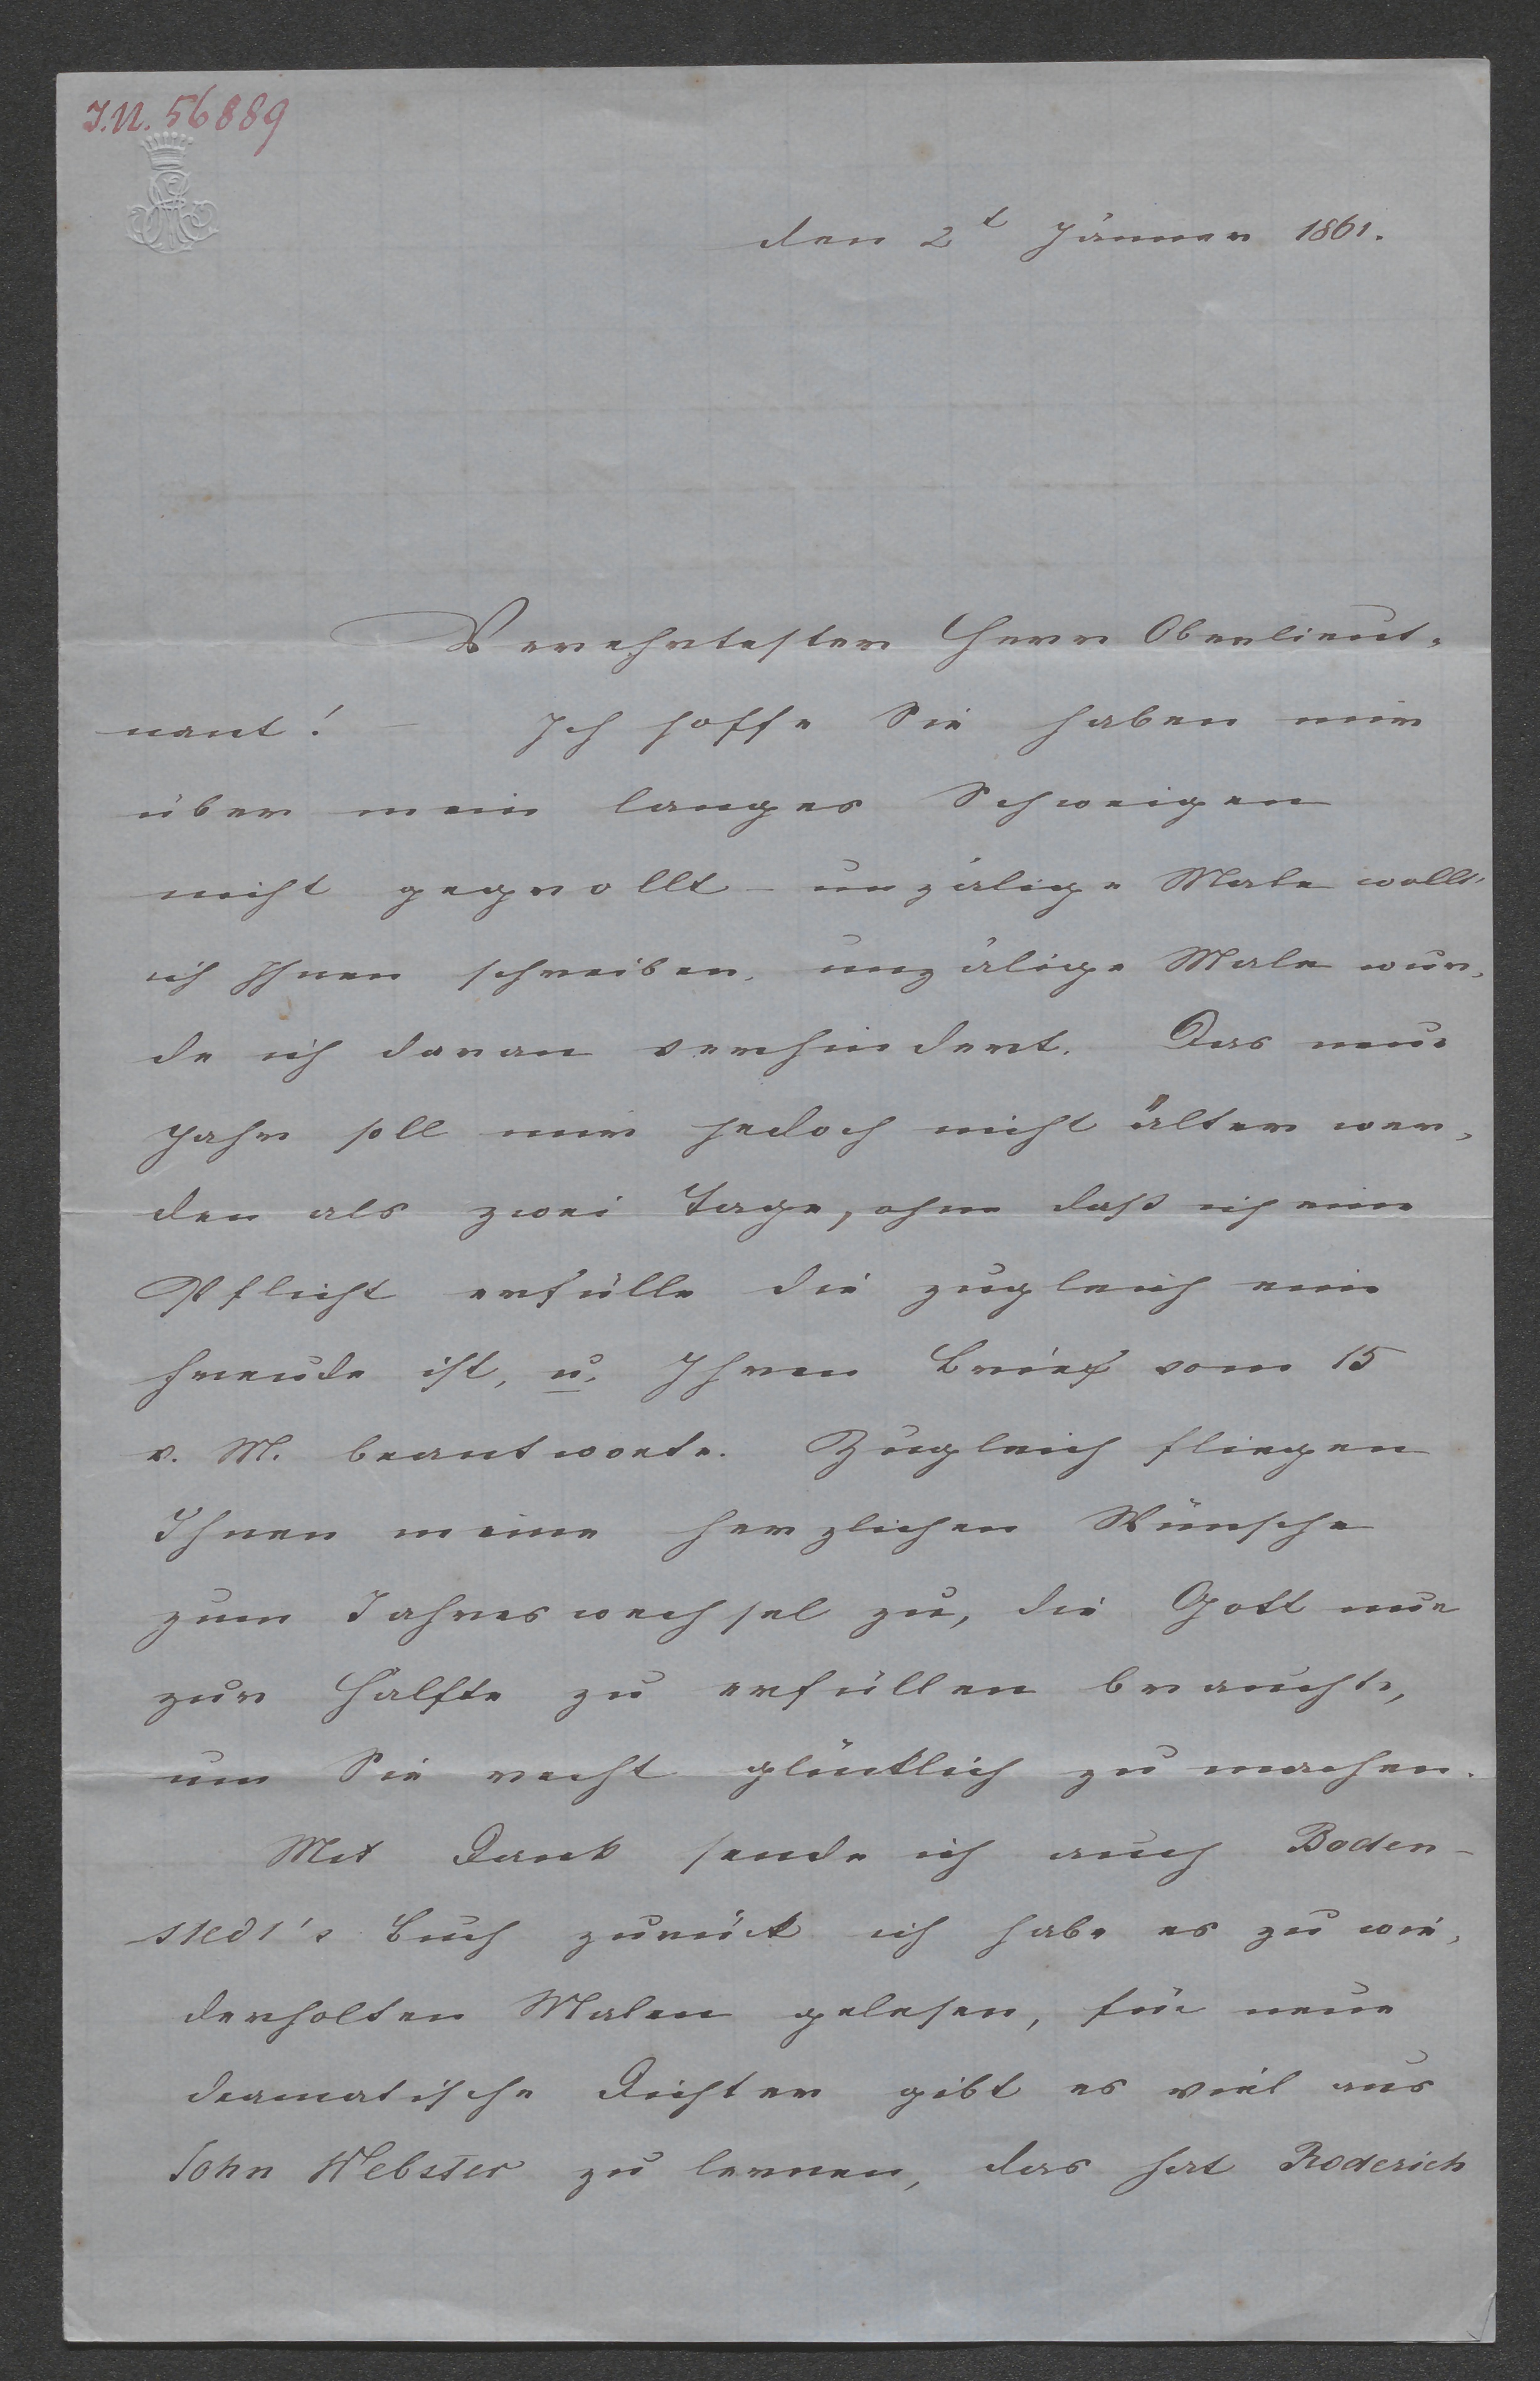 I.N. 56889
den 2t Jänner 1861.
Verehrtester Herr Oberlieut-
nant! – Ich hoffe Sie haben mir
über mein langes Schweigen
nicht gegrollt – unzälige Male wollt'
ich Ihnen schreiben, unzälige Male wur-
de ich daran verhindert. Das neue
Jahr soll mir jedoch nicht älter wer-
den als zwei Tage, ohne daß ich eine
Pflicht erfülle die zugleich eine
Freude ist, u. Ihren Brief vom 15
v. M. beantworte. Zugleich fliegen
Ihnen meine herzlichen Wünsche
zum Jahreswechsel zu, die Gott nur
zur Hälfte zu erfüllen brauchte,
um Sie recht glücklich zu machen.
Mit Dank sende ich auch Boden-
stedt's Buch zurück ich habe es zu wie-
derholten Malen gelesen, für neue
dramatische Dichter gibt es viel aus
John Webster zu lernen, das hat Roderich